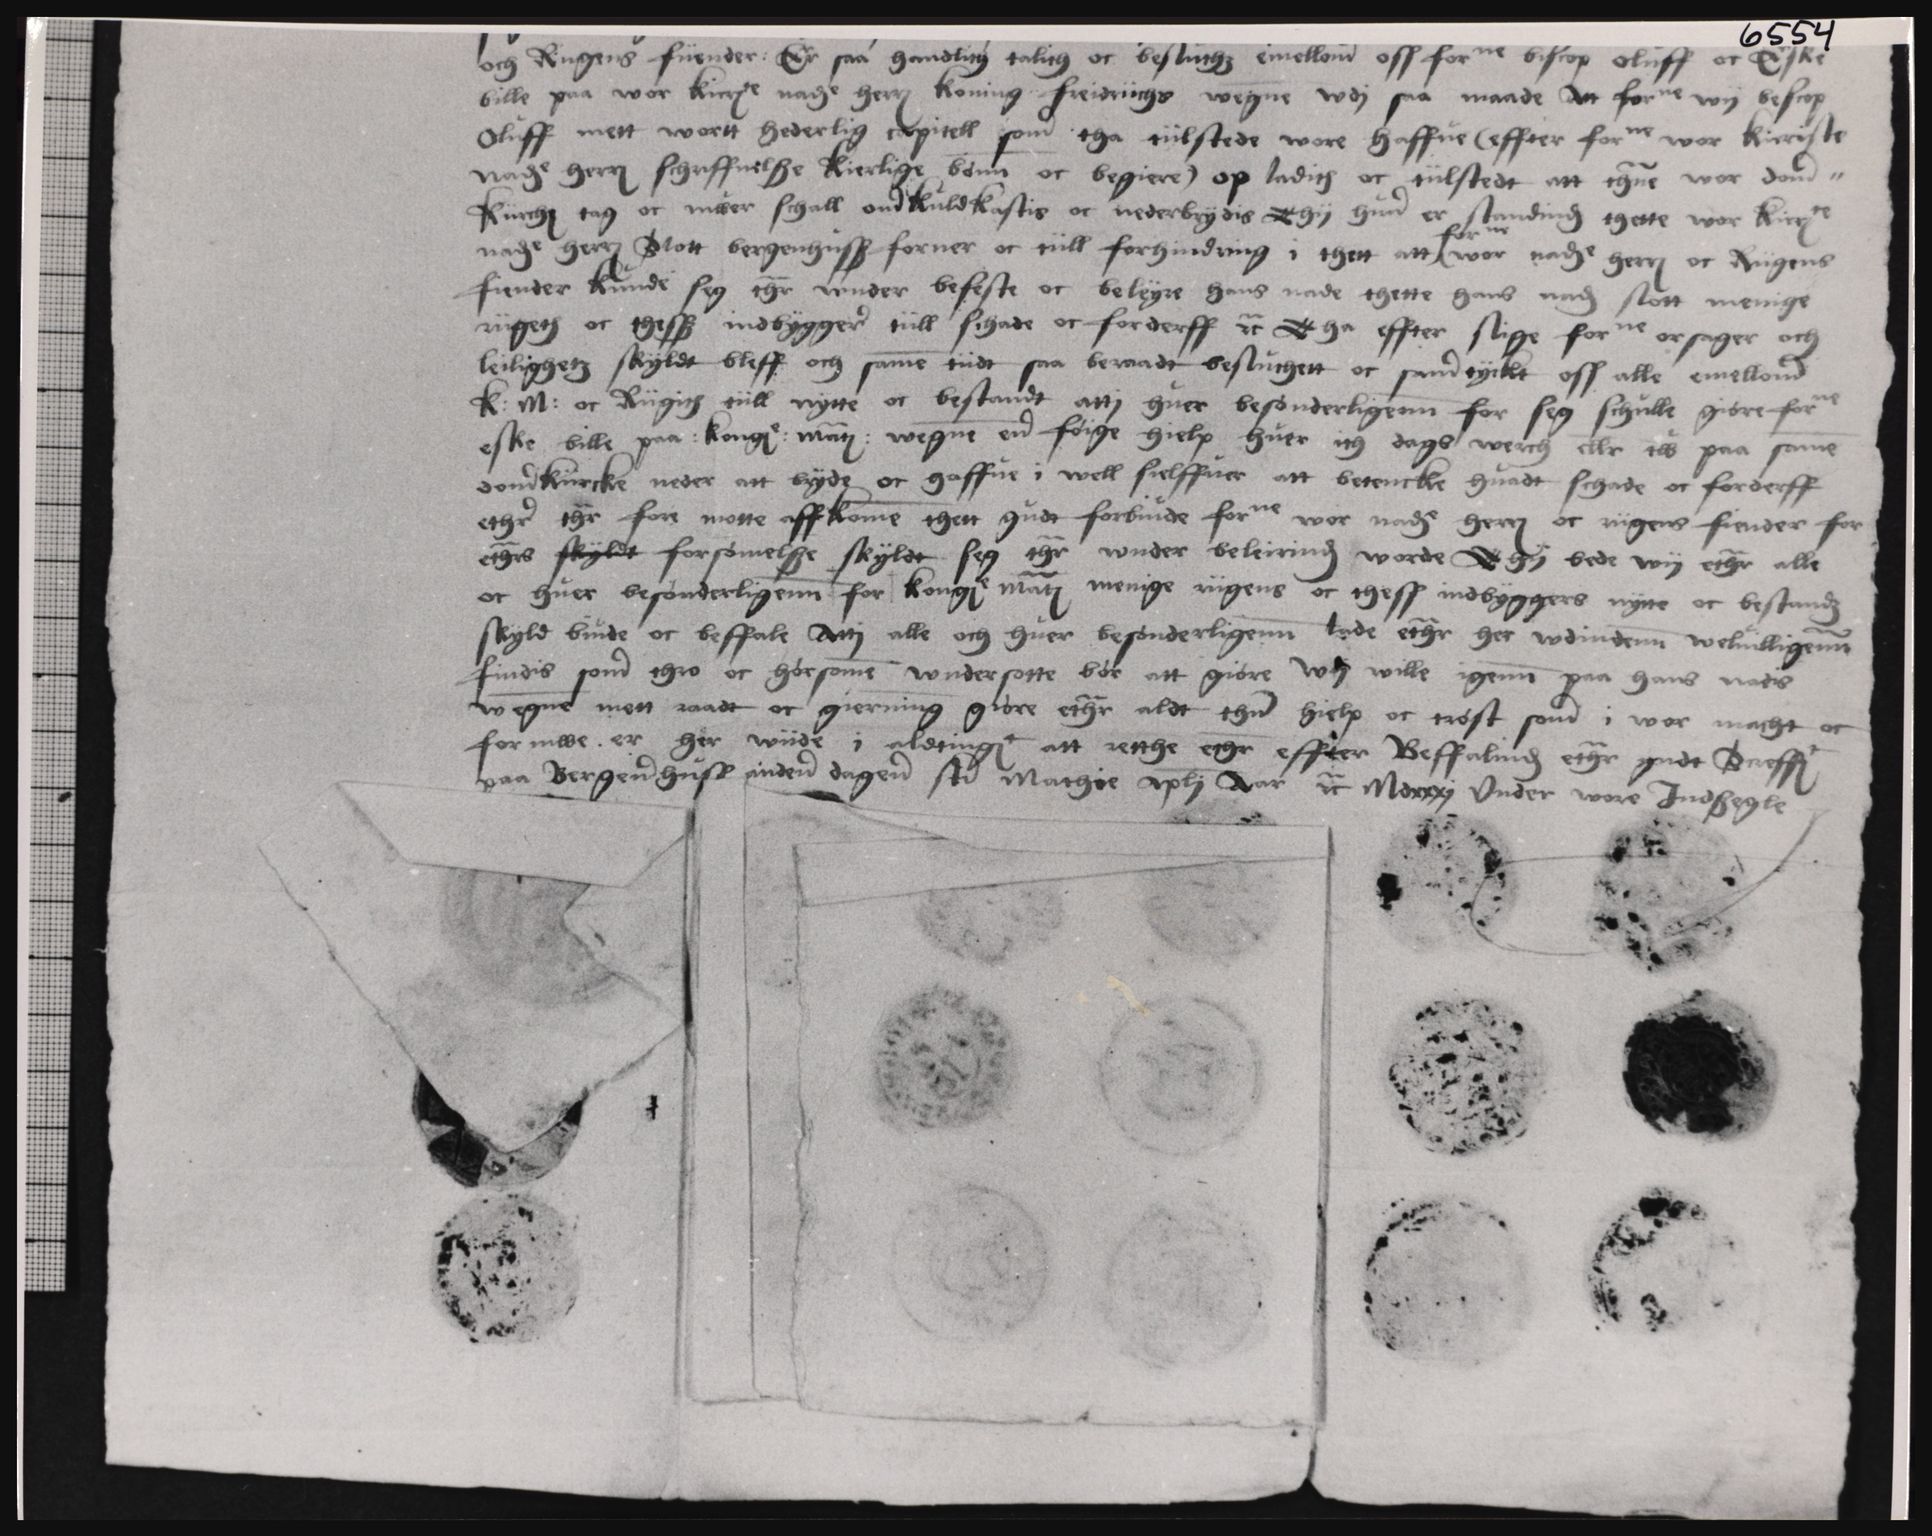 6554
och Rigens fiiender: Er saa handlith talith oc besluthz emellom oss forne biscop oluff oc Eske
bille paa wor kierste nadhe herr koning freidriichs wegne wdj saa maade Att forne wij bescop
Oluff mett wortt hederlig capitell som tha tiilstede wore haffue (effter forne wor kieriste
nadhe herr schriffuelsse kierlige bønn oc begiere) op ladith oc tiilstedt att thenne wor dom"
kiirche tag oc mwer schall omkuldkastis oc nederbrydis Thij hun er standind thette wor kierste
nadhe herr Slott bergenhuss forner oc tiill forhindring i thett att forne wor nadhe herr oc Riigens
fiender kunde seg ther wnder befeste oc beleyre hans nade thette hans nadz slott menige
riigeth oc thess indbyggere tiill schade oc forderff etc Tha effter slige forne orsager och
leilighetz skyldt bleff och same tiidt saa beraadt besluthett oc samtyckt oss alle emellom
K: M: oc Riigith tiill nytte oc bestandt attj huer besønderligenn for seg schulle giøre forne
eske bille paa: konge: matz: wegne en føige hielp huer ith dags werch eller tw paa same
domkiircke neder att bryde oc haffue i well sielffuer att betencke huadt schade oc forderff
ether ther fore motte affkome thett gudt forbiude forne wor nadhe herr oc riigens fiender for
ethers skyldt forsømelsse skyldt seg ther wnder beleirind worde Thij bede wij ether alle
oc huer besønderligenn for konge matz menige riigens oc thess indbyggers nytte oc bestandz
skyld biude oc beffale Attj alle och huer besønderligenn lade ether her wdindenn weluilligenn
findis som thro oc hørsome wndersotte bør att giøre Wij wille igenn paa hans nadis
wegne mett raadt oc gierning giøre ether aldt then hielp oc trøst som i wor macht oc
formwe er her wiide i aldtingist att retthe ether effter Beffalind ether gudt Screffit
paa Bergenhuss anden dagen sti Mathie aplj Aar etc Mdxxxj Under wore Indsegle